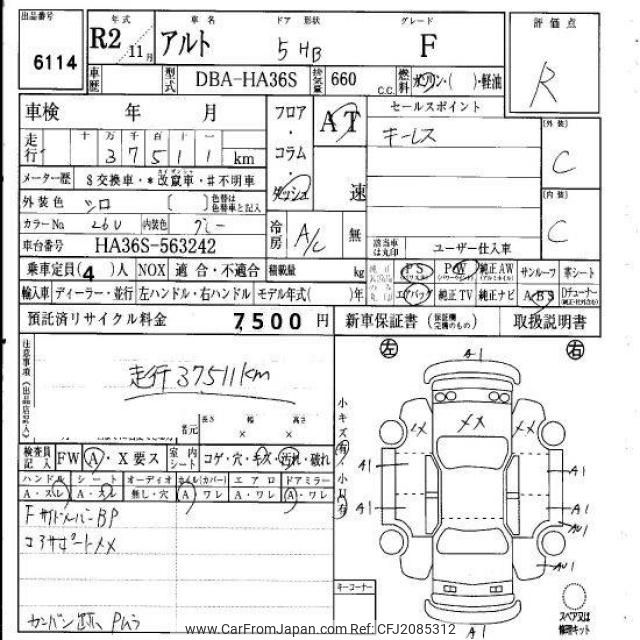 出品番号 年式 車名 ドア 形状 グレード 評価点
6114 R2 11月 アルト 5 HB F R
車歴 型式 DBA-HA36S 排気量 660 C.C. 燃料 ガソリン・( )・軽油
車検 年 月 フロア AT セールスポイント
走行 十 万 千 百 十 一 キーレス [外装]
3 7 5 1 1 km コラム C
メーター歴 $交換車・*改竄車・#不明車 ダッシュ 速
外装色 シロ [ ] 色替は色替車と記入 [内装]
カラーNo 26U 内装色 グレー 冷房 A/C 無 C
車台番号 HA36S-563242 該当車は丸印 ユーザー仕入車
乗車定員(4)人 NOX 適合・不適合 積載量 kg PS PW 純正AW サンルーフ 革シート
輸入車 ディーラー・並行 左ハンドル・右ハンドル モデル年式( )年 エアバッグ 純正TV 純正ナビ ABS Dチューナー
預託済リサイクル料金 7,500 円 新車保証書 (保証継完備のもの) 取扱説明書
注意事項(出品店記入) 左 右
A1
走行37511km
小キズ有 小U有 XX XX XX
諸元 長さ 幅 高さ
× ×
検査員記入 FW A・X要ス 室内シート コゲ・穴・キズ・汚れ・破れ A1 A1
ハンドル シート オーディオ ホイル(カバー) エアロ ドアミラー
A・スレ A・スレ 無し・穴 A・ワレ A・ワレ A・ワレ A1 A1
FサイドメンバーBP AU1
コアサポートXX
AU1
キーコーナー
スペア又は修理キット
カンバン跡、Pムラ A1
www.CarFromJapan.com Ref:CFJ2085312